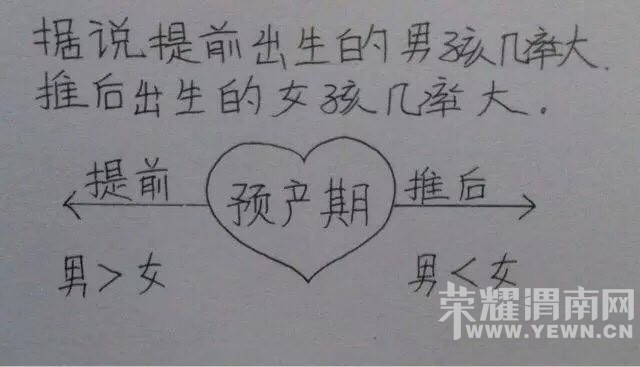 据说提前出生的男孩几率大.
推后出生的女孩几率大.
提前 预产期 推后
男>女 男<女
荣耀渭南网
WWW.YEWN.CN